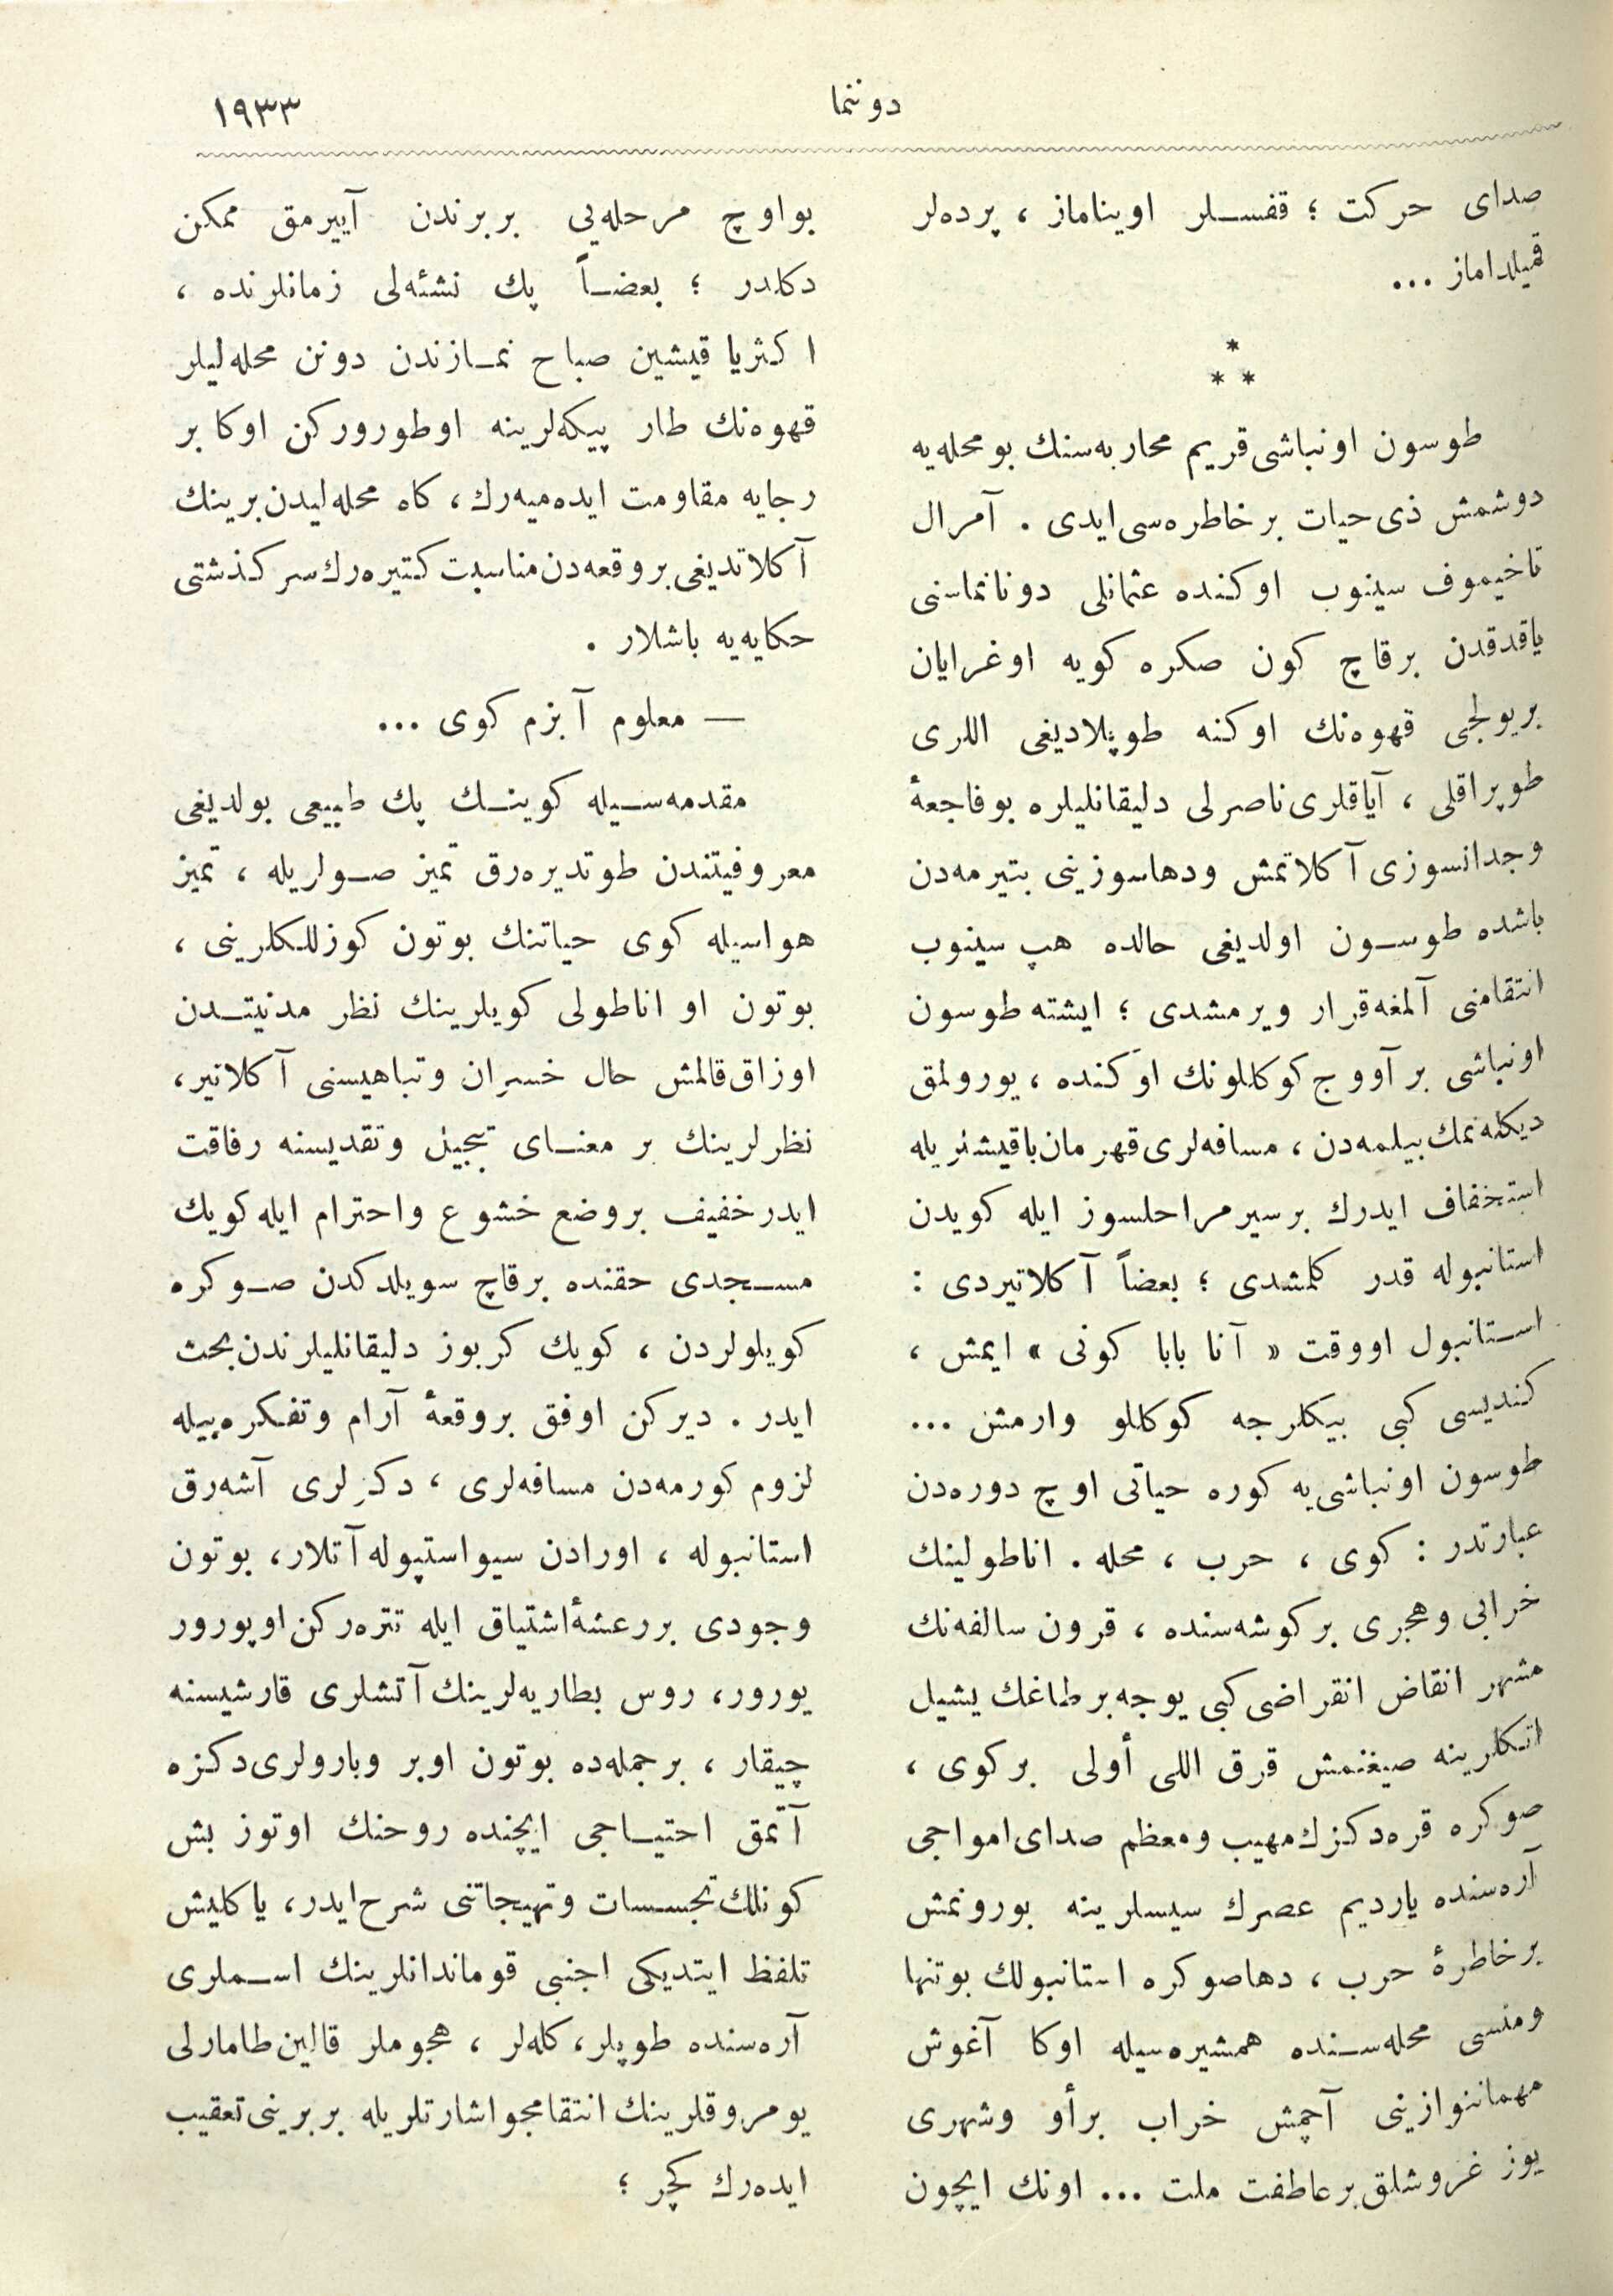 دوننما
١٩٣٣
صدای حركت ؛ قفسلر اویناماز ، پرده‌لر
قمیلداماز ...
*
* *
طوسون اونباشی قریم محاربه‌سنك بو محله‌یه
دوشمش ذی حیات بر خاطره‌سی ایدی . آمرال
ناخیموف سینوب اوكنده عثمانلی دونانماسنی
یاقدقدن برقاچ كون صكره كویه اوغرایان
بریولجی قهوه‌نك اوكنه طوپلادیغی اللری
طوپراقلی ، آیاقلری ناصرلی دلیقانلیلره بو فاجعهٔ
وجدانسوزی آكلاتمش ودها سوزینی بتیرمه‌دن
باشده طوسون اولدیغی حالده هپ سینوب
انتقامنی آلمغه قرار ویرمشدی ؛ ایشته طوسون
اونباشی بر آووج كوكللونك اوكنده ، یورولمق
دیكله‌نمك بیلمه‌دن ، مسافه‌لری قهرمان باقیشلریله
استخفاف ایدرك بر سیر مراحلسوز ایله كویدن
استانبوله قدر كلمشدی ؛ بعضاً آكلاتیردی :
استانبول اووقت « آنا بابا كونی » ایمش ،
كندیسی كبی بیكلرجه كوكللو وارمش ...
طوسون اونباشی‌یه كوره حیاتی اوچ دوره‌دن
عبارتدر : كوی ، حرب ، محله . اناطولینك
خرابی وهجری بر كوشه‌سنده ، قرون سالفه‌نك
مشهر انقاض انقراضی كبی یوجه بر طاغك یشیل
اتكلرینه صیغنمش قرق اللی أولی بر كوی ،
صوكره قره‌دكزك مهیب ومعظم صدای امواجی
آره‌سنده یاردیم عصرك سیسلرینه بورونمش
بر خاطرهٔ حرب ، دها صوكره استانبولك بو تنها
ومنسی محله‌سنده همشیره‌سیله اوكا آغوش
مهماننوازینی آچمش خراب بر أو وشهری
یوز غروشلق بر عاطفت ملت ... اونك ایچون
بو اوچ مرحله‌یی بربرندن آییرمق ممكن
دكلدر ؛ بعضاً پك نشئه‌لی زمانلرنده ،
اكثریا قیشین صباح نمازندن دونن محله‌لیلر
قهوه‌نك طار پیكه‌لرینه اوطوروركن اوكا بر
رجایه مقاومت ایده‌میه‌رك ، كاه محله‌لیدن برینك
آكلاتدیغی بر وقعه‌دن مناسبت كتیره‌رك سر كذشتی
حكایه‌یه باشلار .
— معلوم آ بزم كوی ...
مقدمه‌سیله كوینك پك طبیعی بولدیغی
معروفیتندن طوتدیره‌رق تمیز صولریله ، تمیز
هواسیله كوی حیاتنك بوتون كوزللكلرینی ،
بوتون او اناطولی كویلرینك نظر مدنیتدن
اوزاق قالمش حال خسران وتباهیسنی آكلاتیر،
نظرلرینك بر معنای تبجیل وتقدیسنه رفاقت
ایدر خفیف بر وضع خشوع واحترام ایله كویك
مسجدی حقنده برقاچ سویلدكدن صوكره
كویلولردن ، كویك كربوز دلیقانلیلرندن بحث
ایدر . دیركن اوفق بر وقعهٔ آرام وتفكره بیله
لزوم كورمه‌دن مسافه‌لری ، دكزلری آشه‌رق
استانبوله ، اورادن سیواستپوله آتلار، بوتون
وجودی بر رعشهٔ اشتیاق ایله تتره‌ركن اوپورور
یورور، روس بطاریه‌لرینك آتشلری قارشیسنه
چیقار ، بر جمله‌ده بوتون اوبر وبارولری دكزه
آتمق احتیاجی ایچنده روحنك اوتوز بش
كونلك تجسسات وتهیجاتنی شرح ایدر، یاكلیش
تلفظ ایتدیكی اجنبی قوماندانلرینك اسملری
آره‌سنده طوپلر، كله‌لر ، هجوملر قالین طامارلی
یومروقلرینك انتقامجو اشارتلریله بربرینی تعقیب
ایده‌رك كچر ؛